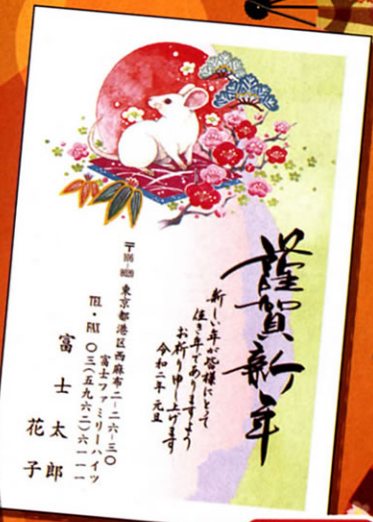 謹賀新年
新しい年が皆様にとって
佳き年でありますよう
お祈り申し上げます
令和二年 元旦
〒106-0031 東京都港区西麻布二-二六-三〇
富士ファミリーハイツ
TEL・FAX 〇三(五九六二)六一一一
富士太郎
花子